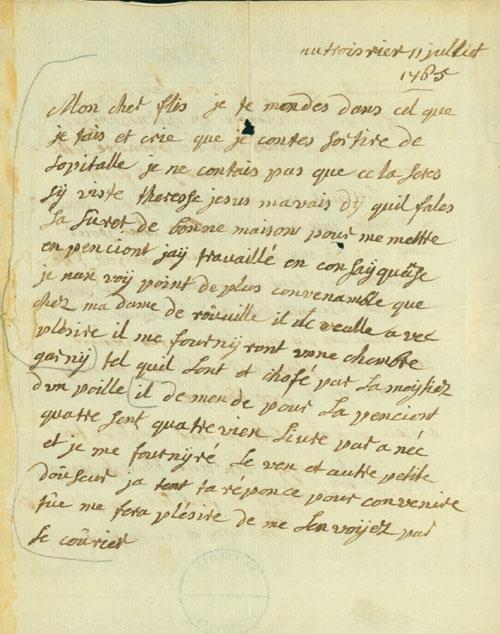 autroisrier 11 julliet
1765
Mon cher flis je te mondes dans cel que
je tais et crie que je contes sortire de
lopitalle je ne contais pas que ce la seres
sÿ viste theresse jesus mavais dÿ quil fales
sa suret de bonne maison pour me mettre
en penciont jaÿ travaillé en consaÿquâse
je nan voÿ point de plus convenamble que
chez ma dame de rouville il le veulle avec
plésire il me fourniront unne chambre
garnij tel quil sont et chofé par la moÿtiez
dun poille il de mon de pour la pencient
quatre sent quatre vien livre par anéc
et je me fournÿré le ven et autre petite
douseur ja tent ta réponce pour convenire
tûe me fera plésire de me lenvoÿez par
le coûrier